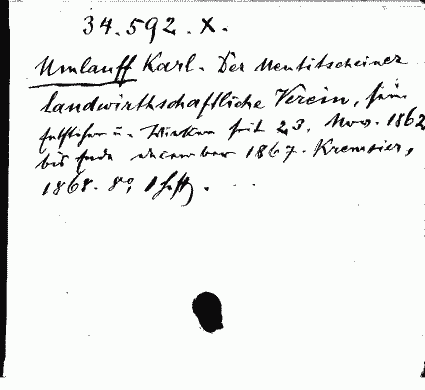 34.592.X.
Umlauff Karl. Der Neutitscheiner
landwirthschaftliche Verein, sein
Entstehen u. Wirken seit 23. Nov. 1862
bis Ende December 1867. Kremsier,
1868. 8o, 1 Heft.